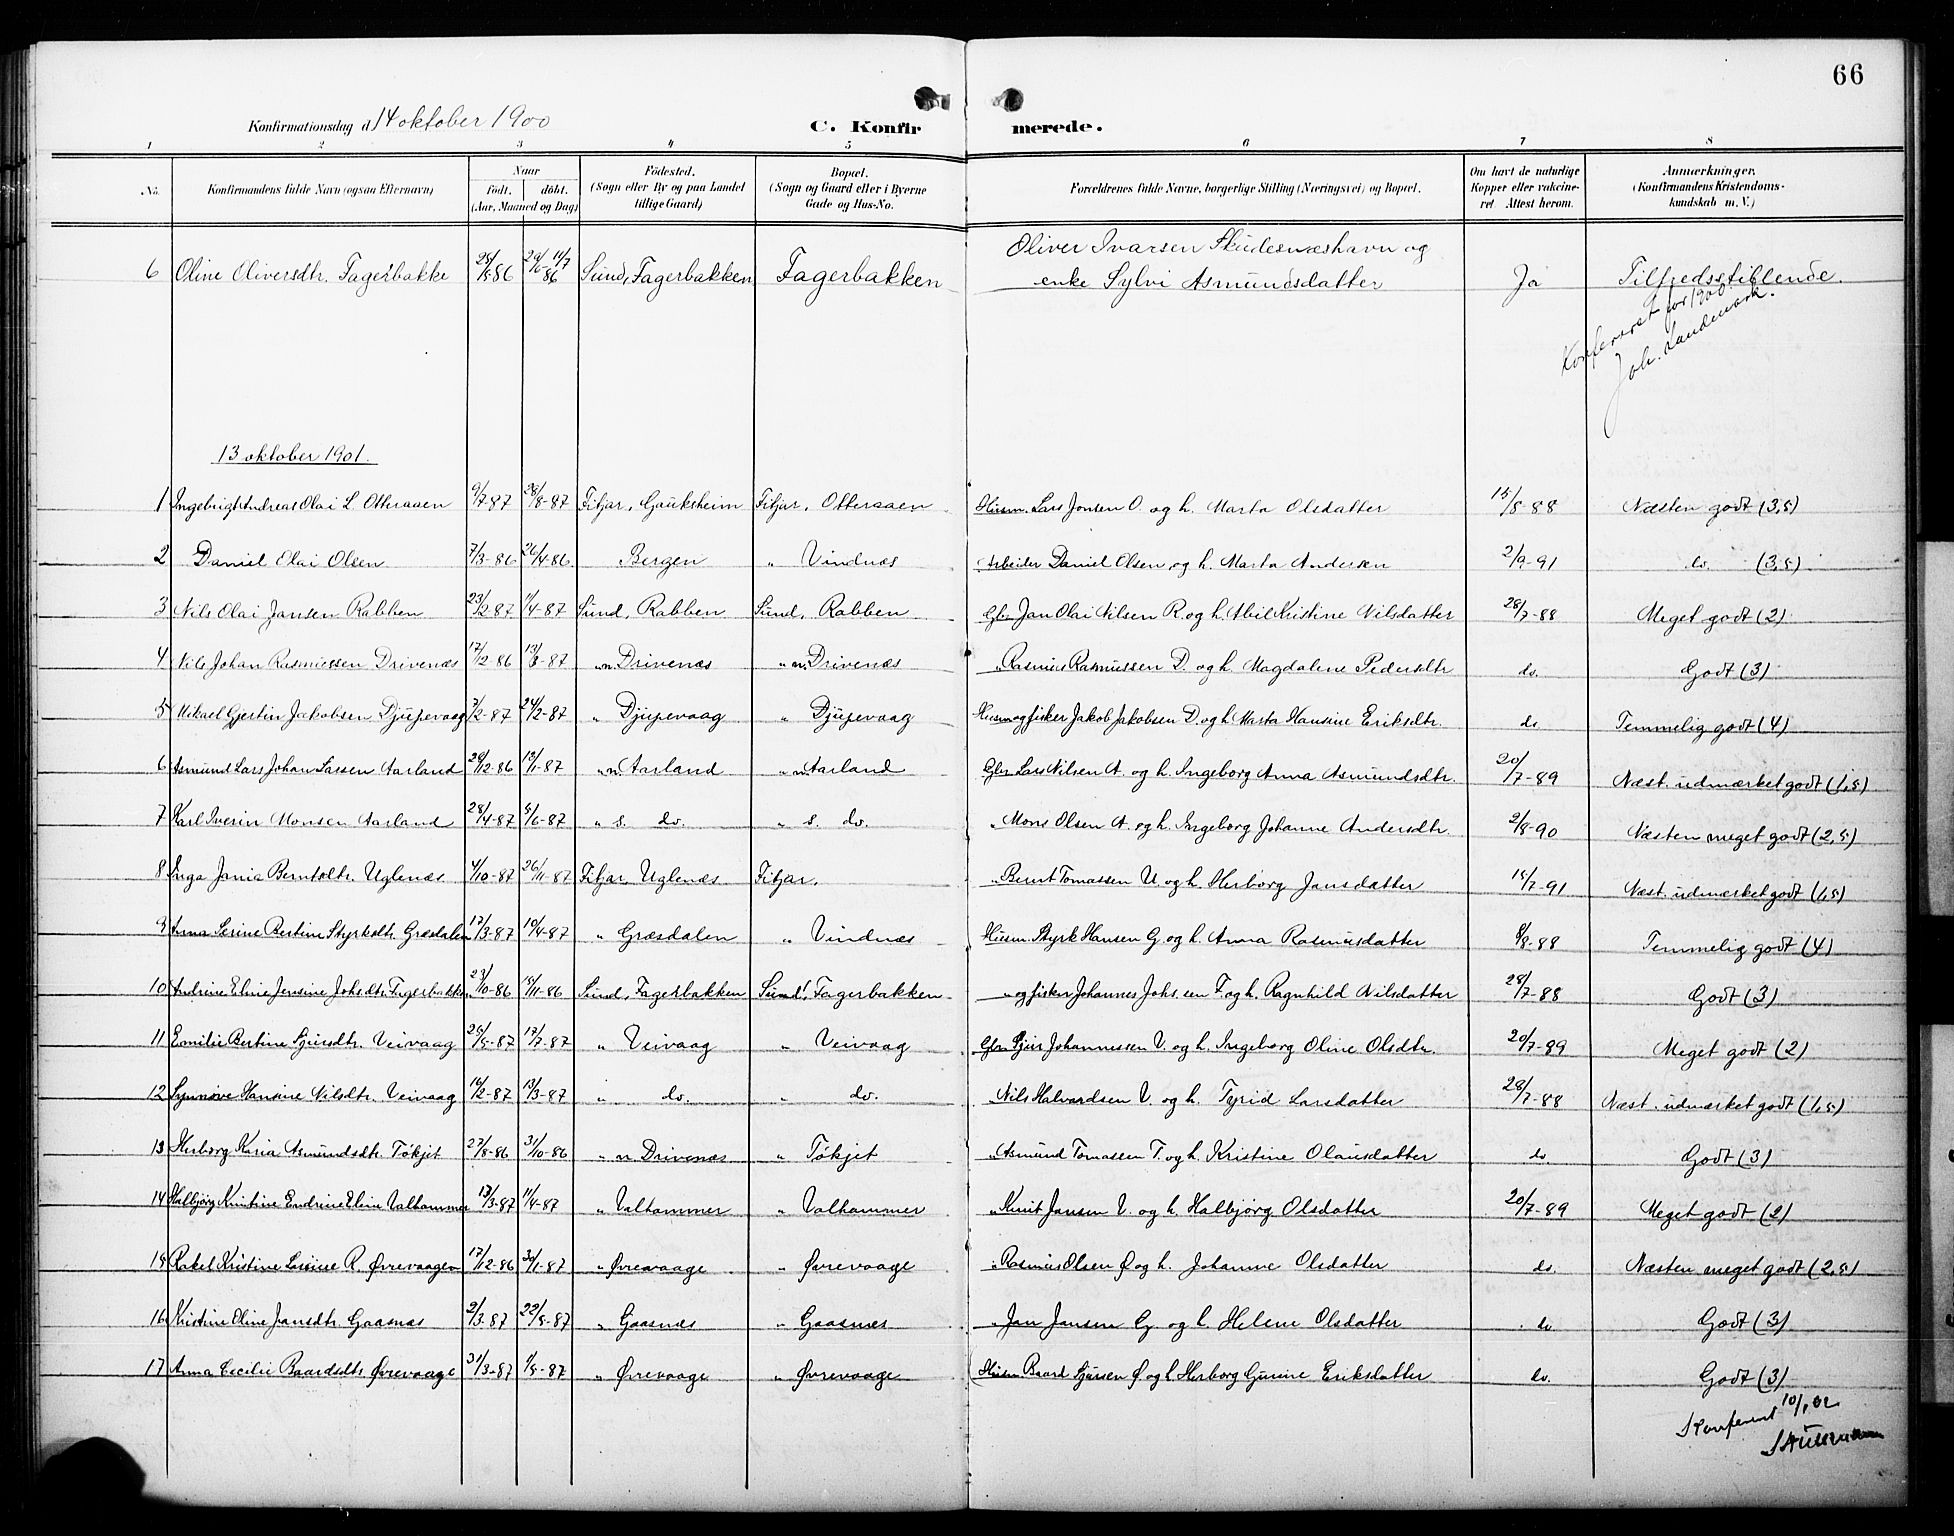 66
Konfirmationsdag d. 14 oktober 1900 C. Konfirmerede.
1 2 3 4 5 6 7 8
No. Konfirmandens fulde Navn (ogsaa Efternavn) Naar født. døbt. (Aar, Maaned og Dag) Fødested. (Sogn eller By og paa Landet tillige Gaard) Bopæl. (Sogn og Gaard eller i Byerne Gade og Hus-No. Forældrenes fulde Navne, borgerlige Stilling (Næringsvei) og Bopæl. Om havt de naturlige Kopper eller vakcineret Attest herom. Anmærkninger. (Konfirmandens Kristendomskundskab m. V.)
Oliver Ivarsen Skudesnæshavn og
6 Oline Oliversdtr. Fagerbakke Sund, Fagerbakken Fagerbakken enke Sylvi Asmundsdatter Ja Tilfredsstillende.
Konfereret for 1900.
Joh. Landmark.
13 oktober 1901.
1 Ingebrigt Andreas Olai L. Otteraaen 9/7-87 28/8-87 Fitjar, Gauksheim Fitjar, Otteraaen Husm. Lars Jonsen O. og h. Marta Olsdatter 15/8-88 Næsten godt (3,5)
2 Daniel Olai Olsen 7/3-86 26/4-86 Bergen " Vindnæs Arbeider Daniel Olsen og h. Marta Andersen 2/9-91 do. (3,5)
3 Nils Olai Jansen Rabben 23/2-87 11/4-87 Sund, Rabben Sund, Rabben Gbr. Jan Olai Nilsen R. og h. Abil Kristine Nilsdatter 28/7-88 Meget godt (2)
4 Nils Johan Rasmussen Drivenæs 17/12-86 " n. Drivenæs " n. Drivenæs " Rasmus Rasmussen D. og h. Magdalene Pedersdtr do. Godt (3)
5 Mikael Gjertin Jakobsen Djupevaag 7/2-87 24/2-87 " Djupevaag " Djupevaag Husm og fisker Jakob Jakobsen D. og h. Marta Hansine Eriksdtr. do Temmelig godt (4)
6 Asmund Lars Johan Larsen Aarland " n. Aarland " n. Aarland Gbr. Lars Nilsen A. og h. Ingeborg Anna Asmundsdtr. 20/7-89 Næst. udmærket godt (1,5)
7 Karl Iverin Monsen Aarland 28/4-87 5/6-87 " s. do. " s. do. " Mons Olsen A. og h. Ingeborg Johanne Andersdtr. 2/8-90 Næsten meget godt (2,5)
8 Inga Jania Berntsdtr. Uglenæs 4/10-87 26/11-87 Fitjar, Uglenæs Fitjar. " Bernt Tomassen U. og h. Herborg Jansdatter 15/7-91 Næst. udmærket godt (1,5)
9 Anna Serine Bertine Styrksdtr. Græsdalen 17/3-87 " Græsdalen " Vindnæs Husm. Styrk Hansen G. og h. Anna Rasmusdatter Temmelig godt (4)
10 Andrine Eline Jensine Johsdtr. Fagerbakken 23/10-86 Sund, Fagerbakken Sund, Fagerbakken " og fisker Johannes Johs.sen F. og h. Ragnhild Nilsdatter 28/7-88 Godt (3)
11 Emilie Bertine Sjursdtr. Veivaag 25/5-87 17/7-87 " Veivaag " Veivaag Gbr. Sjur Johannessen V. og h. Ingeborg Oline Olsdtr. 20/7-89 Meget godt (2)
12 Synnøve Hansine Nilsdtr. Veivaag 16/2-87 13/3-87 " do. " do. " Nils Halvardsen V. og h. Tyrid Larsdatter 28/7-88 Næst. udmærket godt (1,5)
13 Herborg Karia Asmundsdtr. Tökjet 27/8-86 31/10-86 " n Drivenæs " Tökjet " Asmund Tomassen T. og h. Kristine Olausdatter do. Godt (3)
14 Halbjörg Kristine Endrine Eline Valhammer 13/3-87 11/4-87 " Valhammer " Valhammer " Knut Jansen V. og h. Halbjörg Olsdatter 20/7-89 Meget godt (2)
15 Rakel Kristine R. Øvrevaagen 17/12-86 30/1-87 " Øvrevaage " Øvrevaage " Rasmus Olsen Ø og h. Johanne Olsdatter do. Næsten meget godt (2,5)
16 Kristine Oline Jansdtr. Gaasnæs 2/3-87 22/5-87 " Gaasnæs " Gaasnæs " Jan Jansen G. og h. Helene Olsdatter do. Godt (3)
17 Anna Cecilie Baardsdtr. Øvrevaage 31/3-87 1/5-87 " Øvrevaage " Øvrevaage Husm Baard Sjursen Ø og h. Herborg Gurine Eriksdatter do. Godt (3)
Konfereret 10/1 02